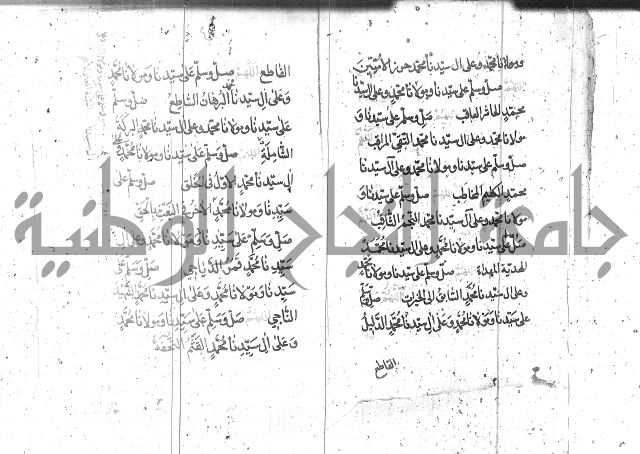 ومولانا محمد وعلى ال سيدنا محمد حرز الأميين
اللهم صل وسلم على سيدنا ومولانا محمد وعلى ال سيدنا
محمد الحاشر العاقب اللهم صل وسلم على سيدنا و
مولانا محمد وعلى ال سيدنا محمد التقي المراقب
صل وسلم على سيدنا ومولانا محمد وعلى آل سيدنا
محمد الكليم المخاطب صل وسلم على سيدنا و
مولانا محمد وعلى آل سيدنا محمد النجم الثاقب
صل وسلم على سيدنا ومولانا محمد وعلى ال سيدنا محمد
لهدية المهداة صل وسلم على سيدنا ومولانا محمد
وعلى ال سيدنا محمد السابق الى الخيرات اللهم صل وسلم
على سيدنا ومولانا محمد وعلى ال سيدنا محمد الدليل
القاطع
القاطع اللهم صل وسلم على سيدنا ومولانا محمد
وعلى ال سيدنا محمد البرهان الساطع صل وسلم
على سيدنا ومولانا محمد وعلى ال سيدنا محمد البركة
الشاملة اللهم صل وسلم على سيدنا ومولانا محمد وعلى
ال سيدنا محمد الاول في الخلق صل وسلم على
سيدنا ومولانا محمد الآخر في البعث بالحق
صل وسلم على سيدنا ومولانا محمد وعلى ال
سيدنا محمد قمر الدياجي صل وسلم على
سيدنا ومولانا محمد وعلى ال سيدنا محمد
الناجي صل وسلم على سيدنا ومولانا محمد
وعلى ال سيدنا محمد القثم
جامعة النجاح الوطنية